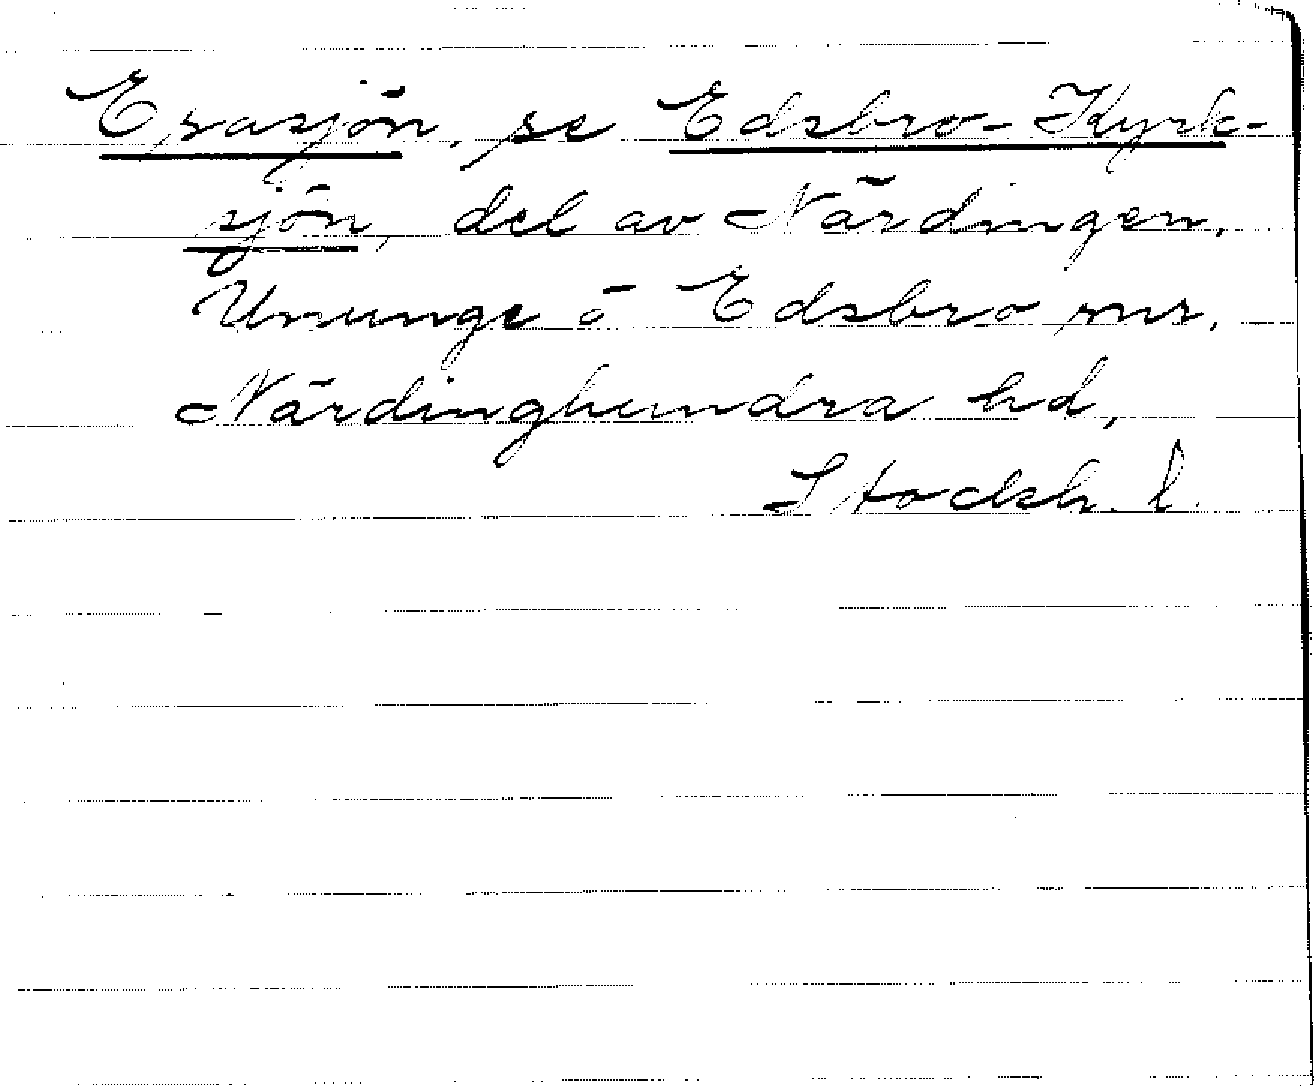 Erasjön, se Edsbro-Kyrk-
sjön, del av Närdingen,
Ununge o Edsbro snr,
Närdinghundra hd,
Stockh. l.